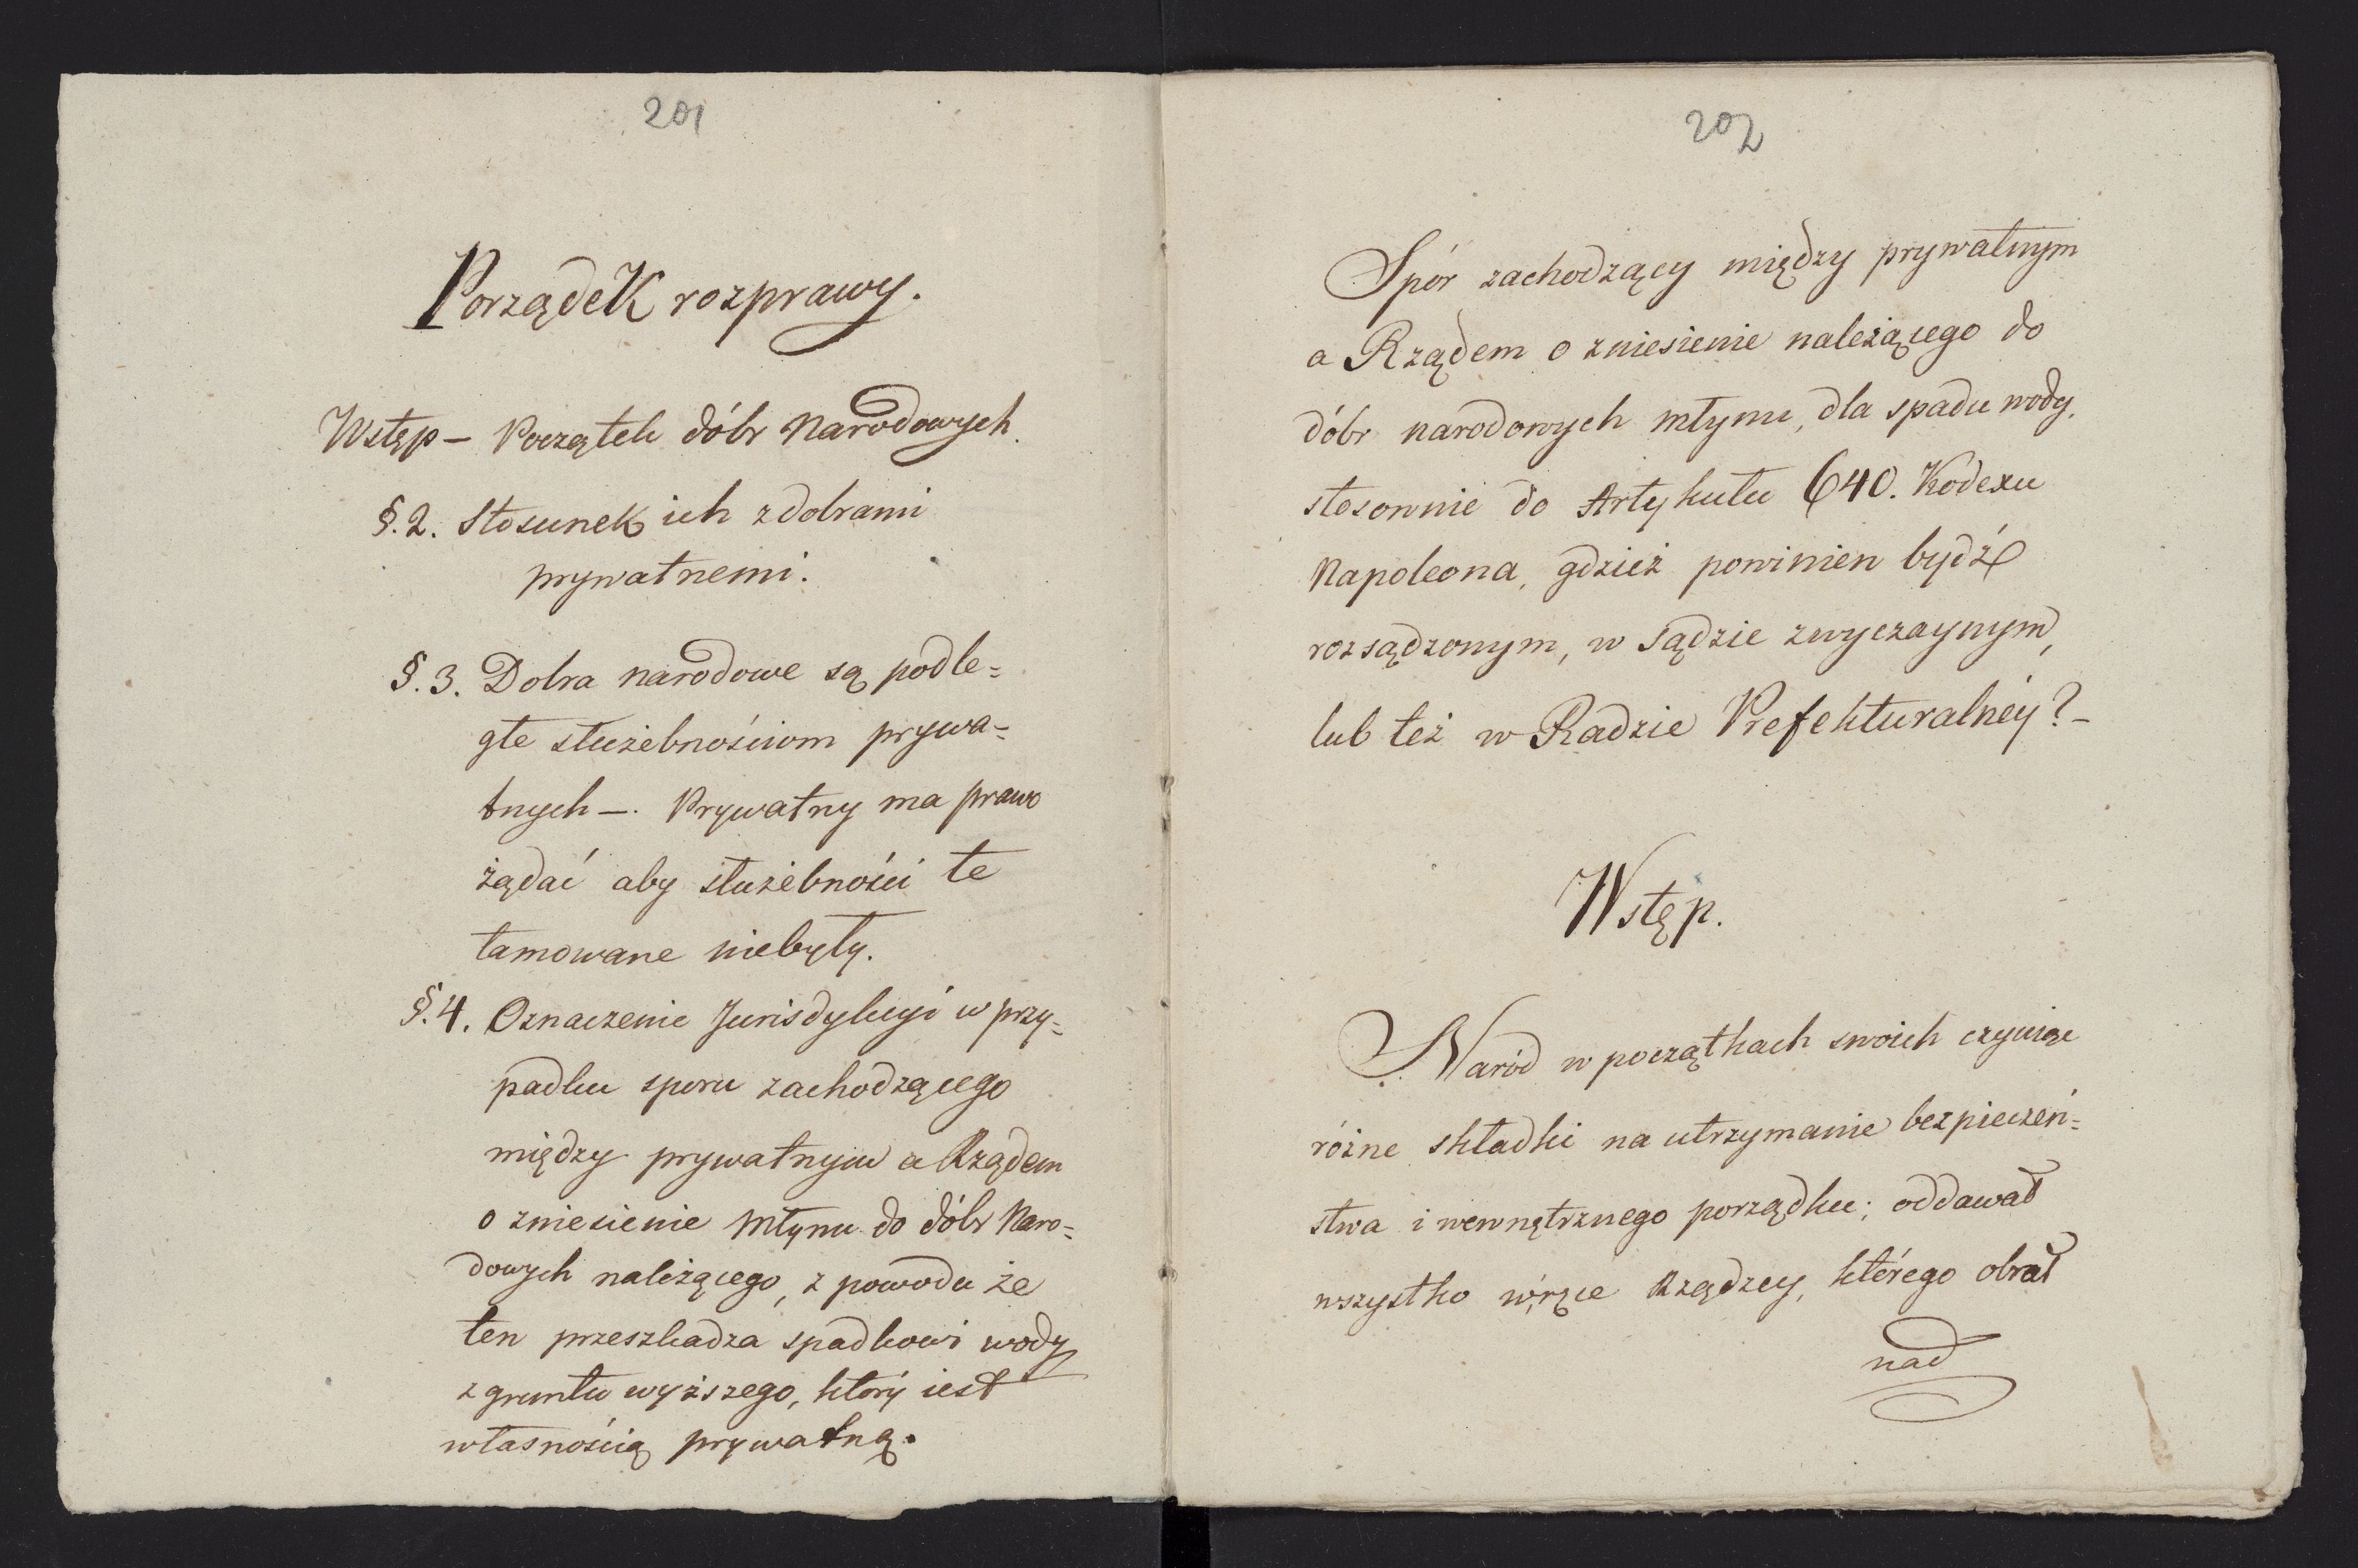 201
Porządek rozprawy.
Wstęp – Początek dóbr Narodowych.
§. 2. Stosunek ich z dobrami
prywatnemi.
§. 3. Dobra narodowe są podle=
głe służebnościom prywa=
tnych –. Prywatny ma prawo
żądać aby służebności te
tamowane niebyły.
§. 4. Oznaczenie Jurisdykcyi w przy=
padku sporu zachodzącego
między prywatnym a Rządem
o zniesienie młynu do dóbr Naro=
dowych należącego, z powodu że
ten przeszkadza spadkowi wody
z gruntu wyższego, który iest
własnością prywatną.
202
Spór zachodzący między prywatnym
a Rządem o zniesienie należącego do
dóbr narodowych młynu, dla spadu wody,
stosownie do Artykułu 640. Kodexu
Napoleona, gdzież powinien bydź
rozsądzonym, w Sądzie zwyczaynym,
lub też w Radzie Prefekturalnéy? –
Wstęp.
Naród w początkach swoich czyniąc
różne składki na utrzymanie bezpieczeń=
stwa i wewnętrznego porządku; oddawał
wszystko w ręce Rządzcy, którego obrał
nad